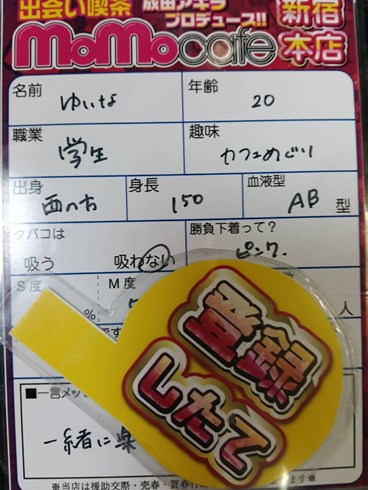 出会い喫茶 成田アキラ プロデュース!! 新宿本店
MoMocafe
名前 ゆいな 年齢 20
職業 学生 趣味 カフェめぐり
出身 西の方 身長 150 血液型 AB 型
タバコは 吸う 吸わない 勝負下着って? ピンク
S度 % M度 人
です
登録
したて
■一言メッ
一緒に楽
※当店は援助交際・売春・買春行
ます※